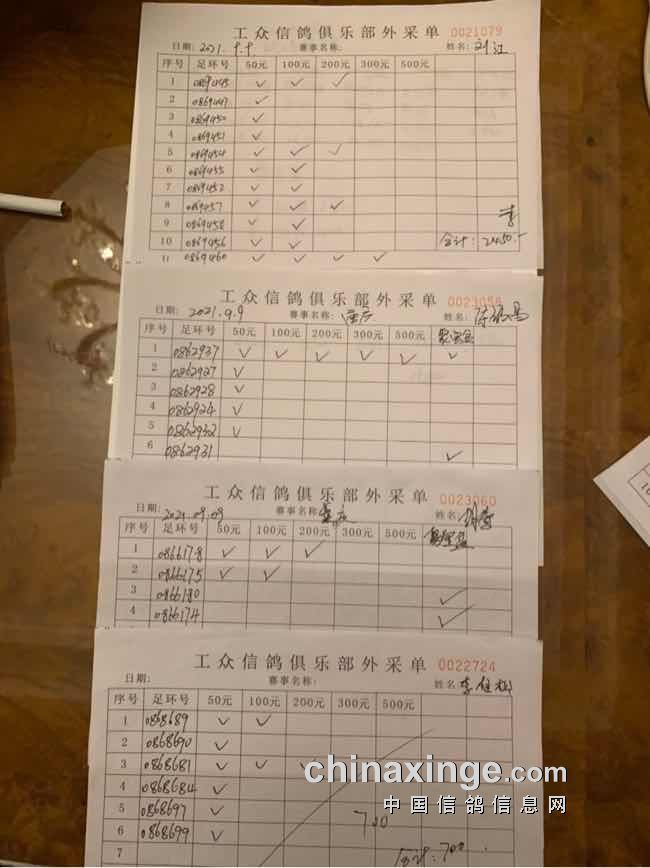 工众信鸽俱乐部外采单 0021079
日期: 2021.9.9. 赛事名称: 姓名: 刘江
序号 足环号 50元 100元 200元 300元 500元
1 0869445 ✓ ✓ ✓
2 0869447 ✓
3 0869450 ✓
4 0869451 ✓
5 0869454 ✓ ✓ ✓
6 0869455 ✓ ✓
7 0869452 ✓ ✓
8 0869457 ✓ ✓ ✓
9 0869458 ✓ ✓
10 0869456 ✓ ✓ 合计: 2450.-
11 0869460 ✓ ✓ ✓ ✓
工众信鸽俱乐部外采单 0023058
日期: 2021.9.9 赛事名称: 重庆 姓名:
序号 足环号 50元 100元 200元 300元 500元
1 0862937 ✓ ✓ ✓ ✓ ✓ ✓
2 0862927 ✓
3 0862928 ✓
4 0862924 ✓
5 0862932 ✓
6 0862931 ✓
工众信鸽俱乐部外采单 0023060
日期: 2021.09.09 赛事名称: 重庆 姓名:
序号 足环号 50元 100元 200元 300元 500元
1 0866178 ✓ ✓ ✓
2 0866175 ✓ ✓
3 0866180 ✓
4 0866174 ✓
工众信鸽俱乐部外采单 0022724
日期: 赛事名称: 姓名:
序号 足环号 50元 100元 200元 300元 500元
1 0868689 ✓ ✓
2 0868690 ✓
3 0868681 ✓ ✓ ✓
4 0868684 ✓
5 0868697 ✓ 700
6 0868699 ✓
7 合计: 700
chinaxinge.com
中国信鸽信息网